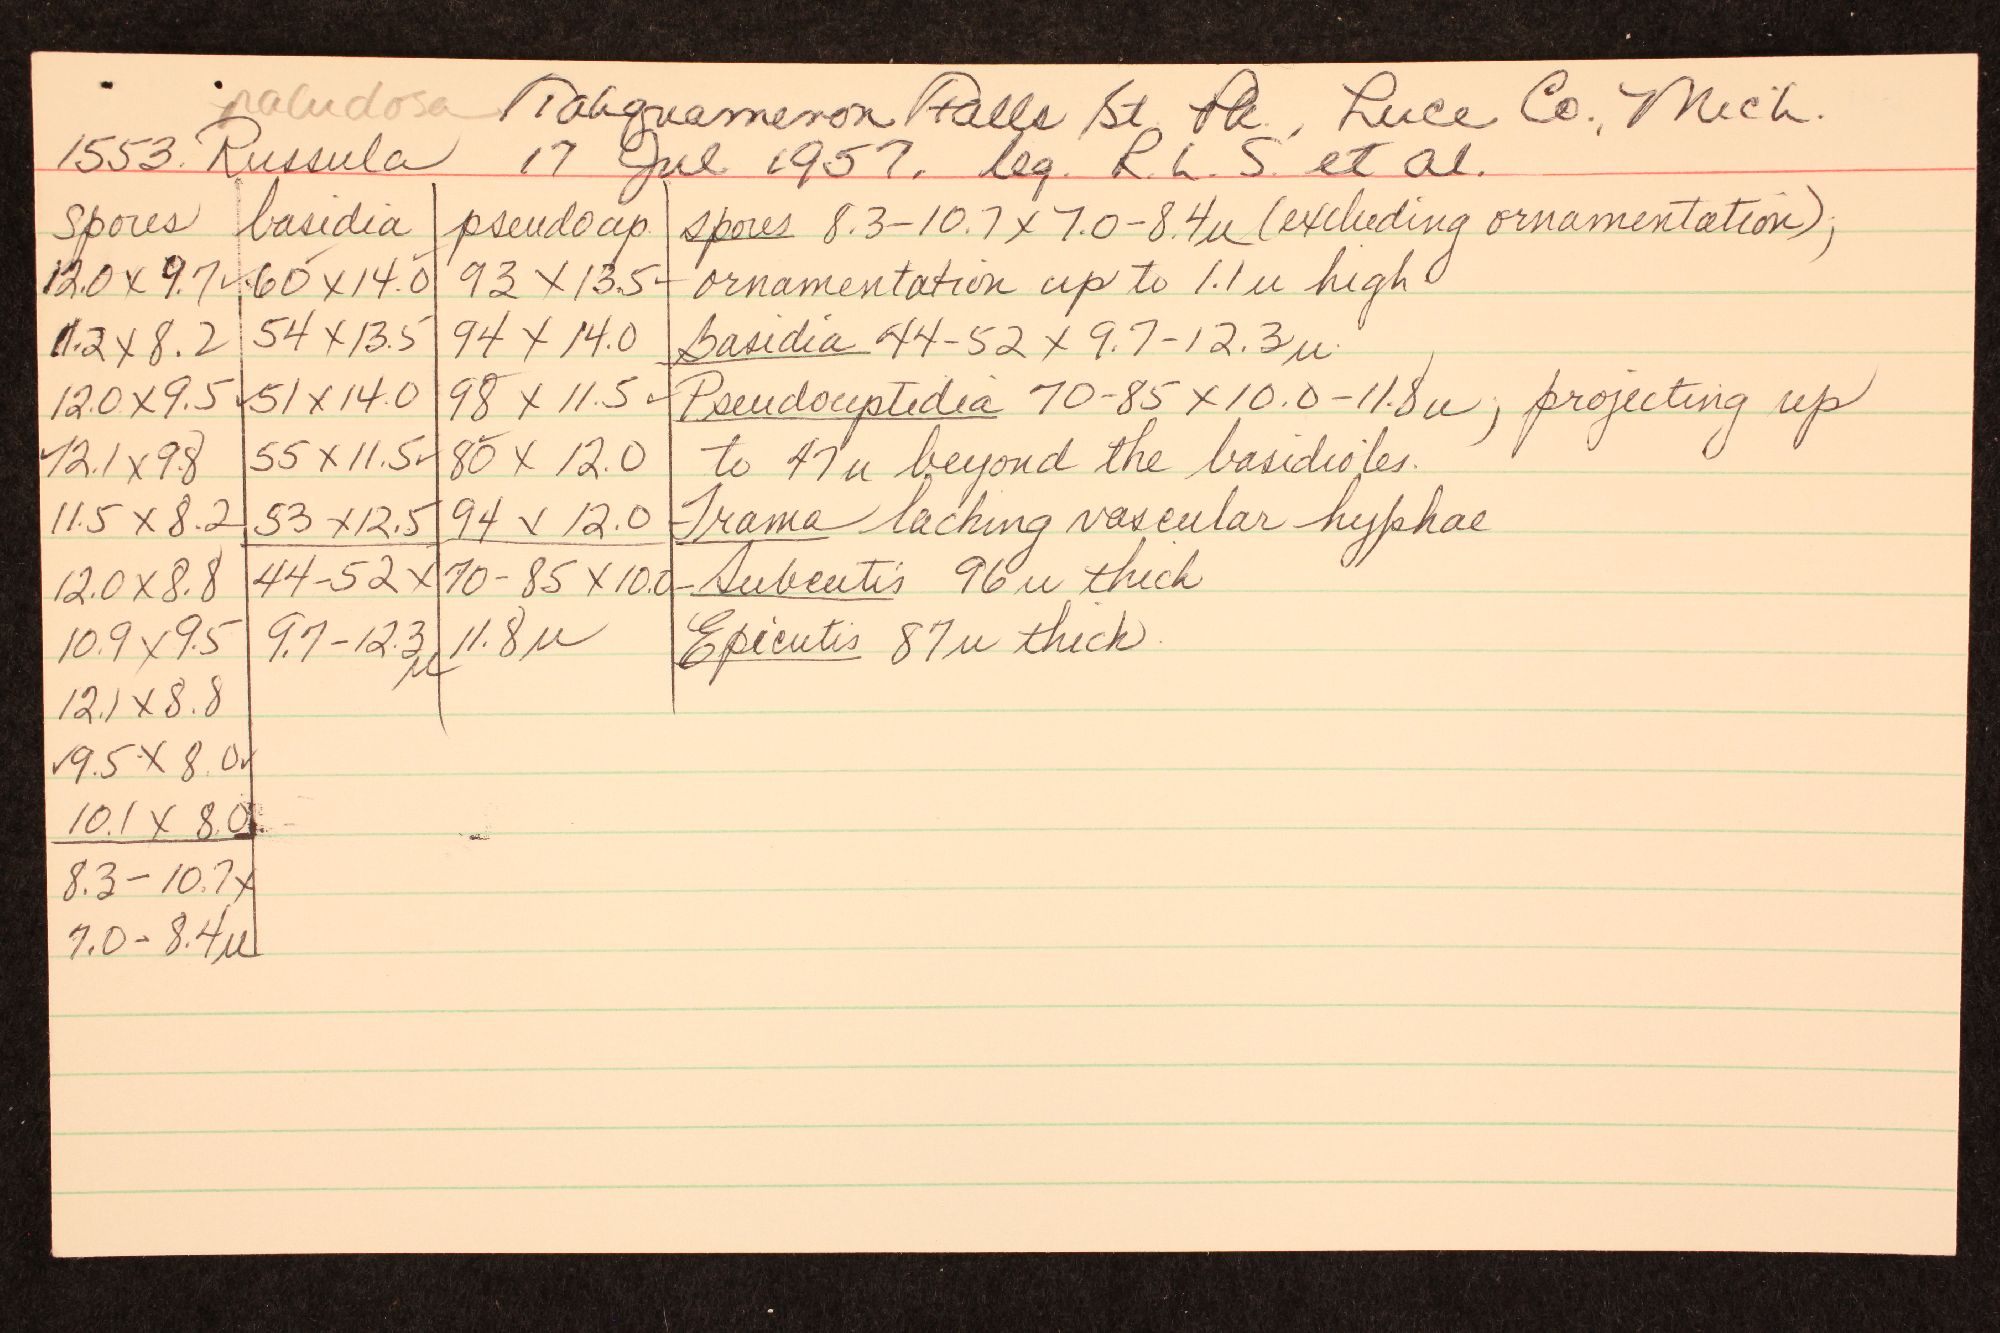 paludosa Tahquamenon Falls St. Pk., Luce Co., Mich.
1553. Russula 17 Jul 1957. leg. R. L. S. et al.
Spores basidia pseudocyp. spores 8.3-10.7 x 7.0-8.4u (excluding ornamentation);
12.0 x 9.7 60 x 14.0 93 x 13.5 ornamentation up to 1.1 u high
11.2 x 8.2 54 x 13.5 94 x 14.0 basidia 44-52 x 9.7-12.3u.
12.0 x 9.5 51 x 14.0 98 x 11.5 Pseudocyptidia 70-85 x 10.0-11.8u, projecting up
12.1 x 9.8 55 x 11.5 80 x 12.0 to 47u beyond the basidioles.
11.5 x 8.2 53 x 12.5 94 x 12.0 Trama lacking vascular hyphae
12.0 x 8.8 44-52 x 70-85 x 10.0- Subcutis 96u thick
10.9 x 9.5 9.7-12.3u 11.8u Epicutis 87u thick.
12.1 x 8.8
9.5 x 8.0
10.1 x 8.0
8.3-10.7x
7.0-8.4u